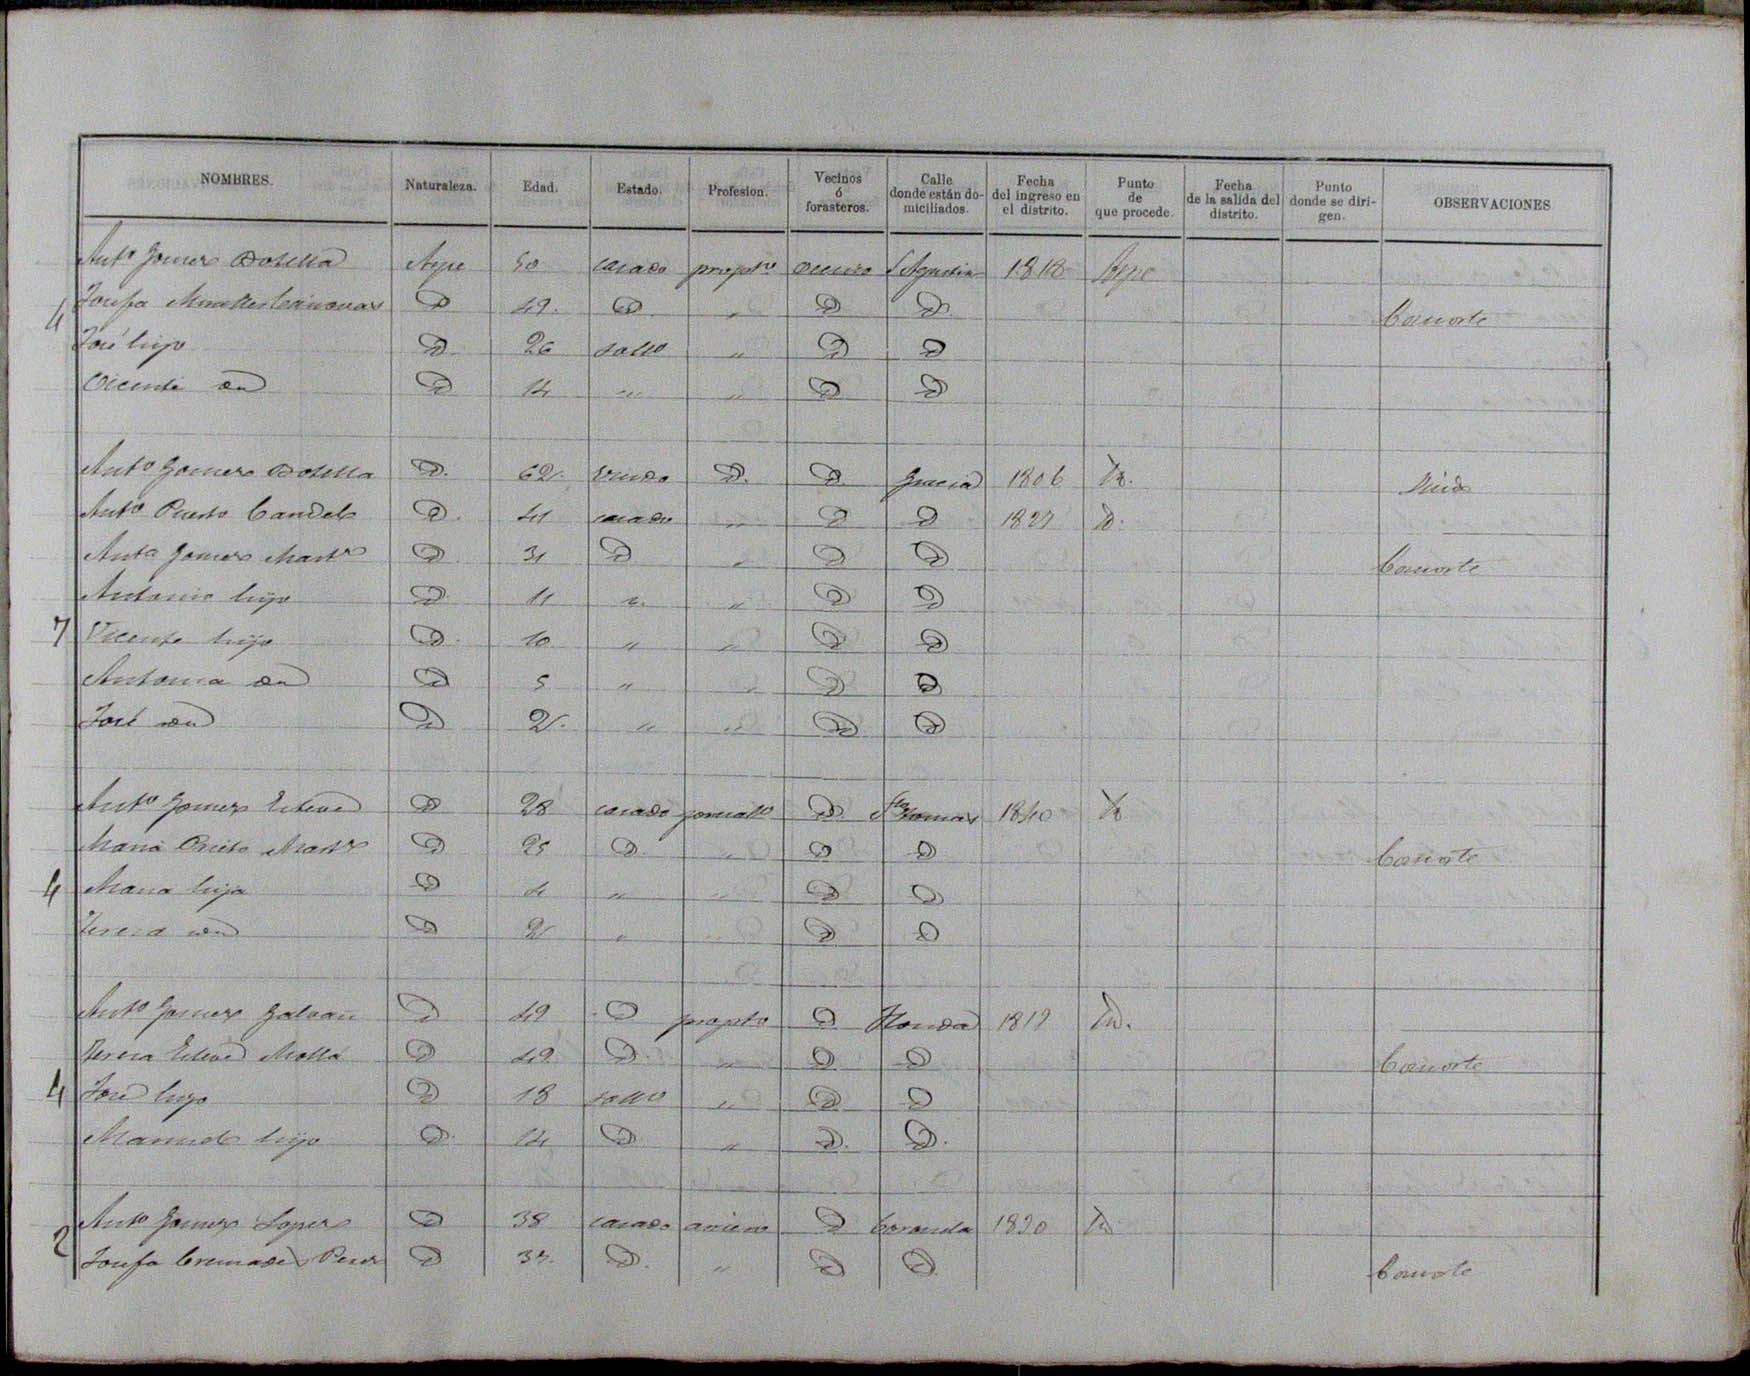 NOMBRES. Naturaleza. Edad. Estado. Profesion. Vecinos ó forasteros. Calle donde están domiciliados. Fecha del ingreso en el distrito. Punto de que procede. Fecha de la salida del distrito. Punto donde se dirigen. OBSERVACIONES
Antº Gomez Botella Aspe 50 casado propetº vecino S Agustin 1818 Aspe
4 Josefa Cánovas D 49. D. " D D. Consorte
José hijo D 26 soltº " D D
Vicente D 14 " " D D
Antº Gomez Botella D. 62. Viudo D. D Gracia 1806 D. Viudo
Antº Puerto Candel D. 41 casado " D D 1827 D.
Antª Gomez Martz D. 31 D " D D Consorte
Antonio hijo D 11 " " D D
7 Vicente hijo D. 10 " " D D
Antonia D 5 " " D D
José D 2. " " D D
Antº Gomez Esteve D 28 casado jornalº D Stº Tomas 1840 D
Maria Prieto Martz D 25 D. " D D Consorte
4 Maria hija D 4 " " D D
Teresa D 2 " " D D
Antº Gomez Galvañ D 49 D propetº D Honda 1819 D.
Teresa Esteve Mollá D 49 D. " D D Consorte
4 José hijo D 18 soltº " D D
Manuel hijo D. 14 D " D. D.
Antº Gomez Lopez D 38 casado arriero D Coronela 1830 D
2 Josefa Cremades Perez D 37. D. " D D. Consorte